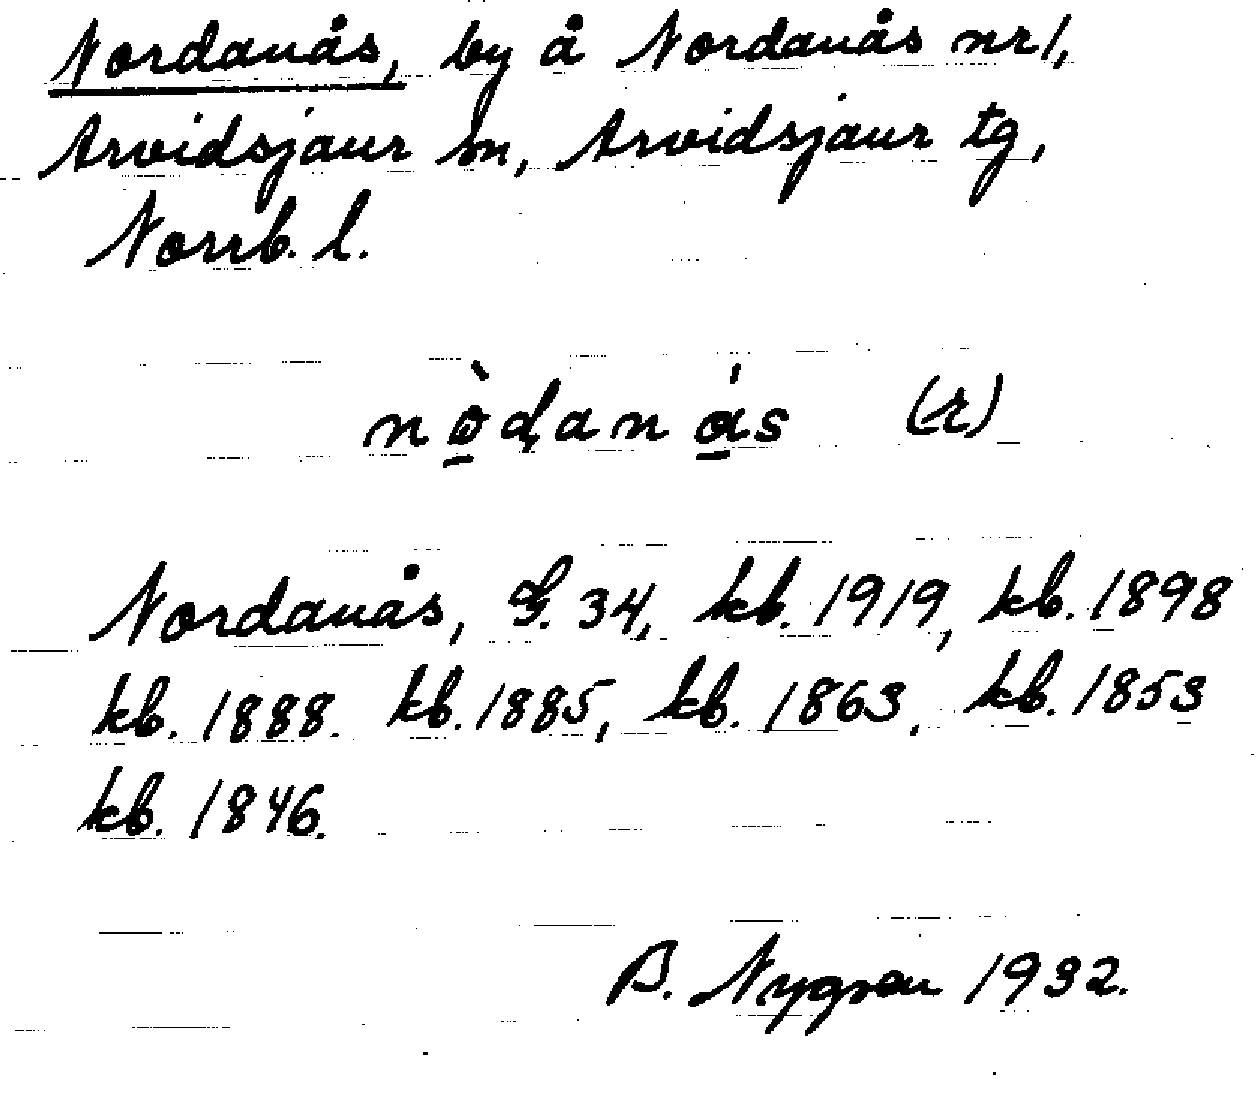 Nordanås, by å Nordanås nr 1,
Arvidsjaur sn, Arvidsjaur tg,
Norrb. l.
nòḍanás (r)
Nordanås, G. 34, kb. 1919, kb. 1898
kb. 1888. kb. 1885, kb. 1863, kb. 1853
kb. 1846.
B. Nygren 1932.